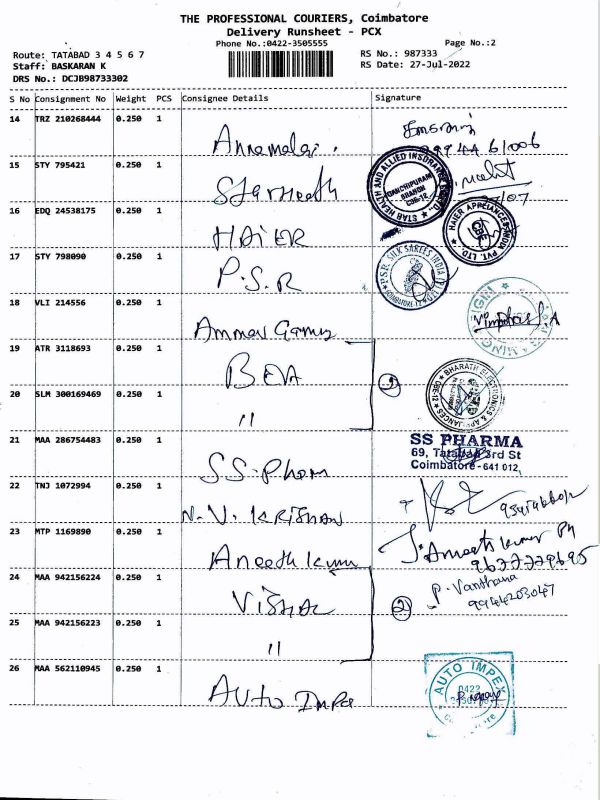 THE PROFESSIONAL COURIERS, Coimbatore
Delivery Runsheet - PCX
Phone No.:0422-3505555
Page No.:2
Route: TATABAD 3 4 5 6 7
RS No.: 987333
Staff: BASKARAN K
RS Date: 27-Jul-2022
DRS No.: DCJB98733302
S No Consignment No Weight PCS Consignee Details Signature
14 TRZ 210268444 0.250 1 Annamalai.
15 STY 795421 0.250 1 Star Health
STAR HEALTH AND ALLIED INSURANCE
KANCHIPURAM
BRANCH
CBE-12
16 EDQ 24538175 0.250 1 HAIER
HAIER APPLIANCES INDIA PVT. LTD.
CBE
17 STY 798090 0.250 1 P.S.R
P.S.R. SILK SAREES INDIA
COIMBATORE-12
18 VLI 214556 0.250 1
19 ATR 3118693 0.250 1 BEA
1
BHARATH ELECTRONICS & APPLIANCES
CBE-12
20 SLM 300169469 0.250 1 "
21 MAA 286754483 0.250 1 SS-Pharm
SS PHARMA
69, Tatabad 3rd St
Coimbatore-641 012
22 TNJ 1072994 0.250 1 N.V. KRISHAN
23 MTP 1169890 0.250 1 Aneeth Kumar
9677779695
24 MAA 942156224 0.250 1 VISHAL
2
P. Vanthana
9944203047
25 MAA 942156223 0.250 1 "
26 MAA 562110945 0.250 1 Auto Impex
AUTO IMPEX
0422